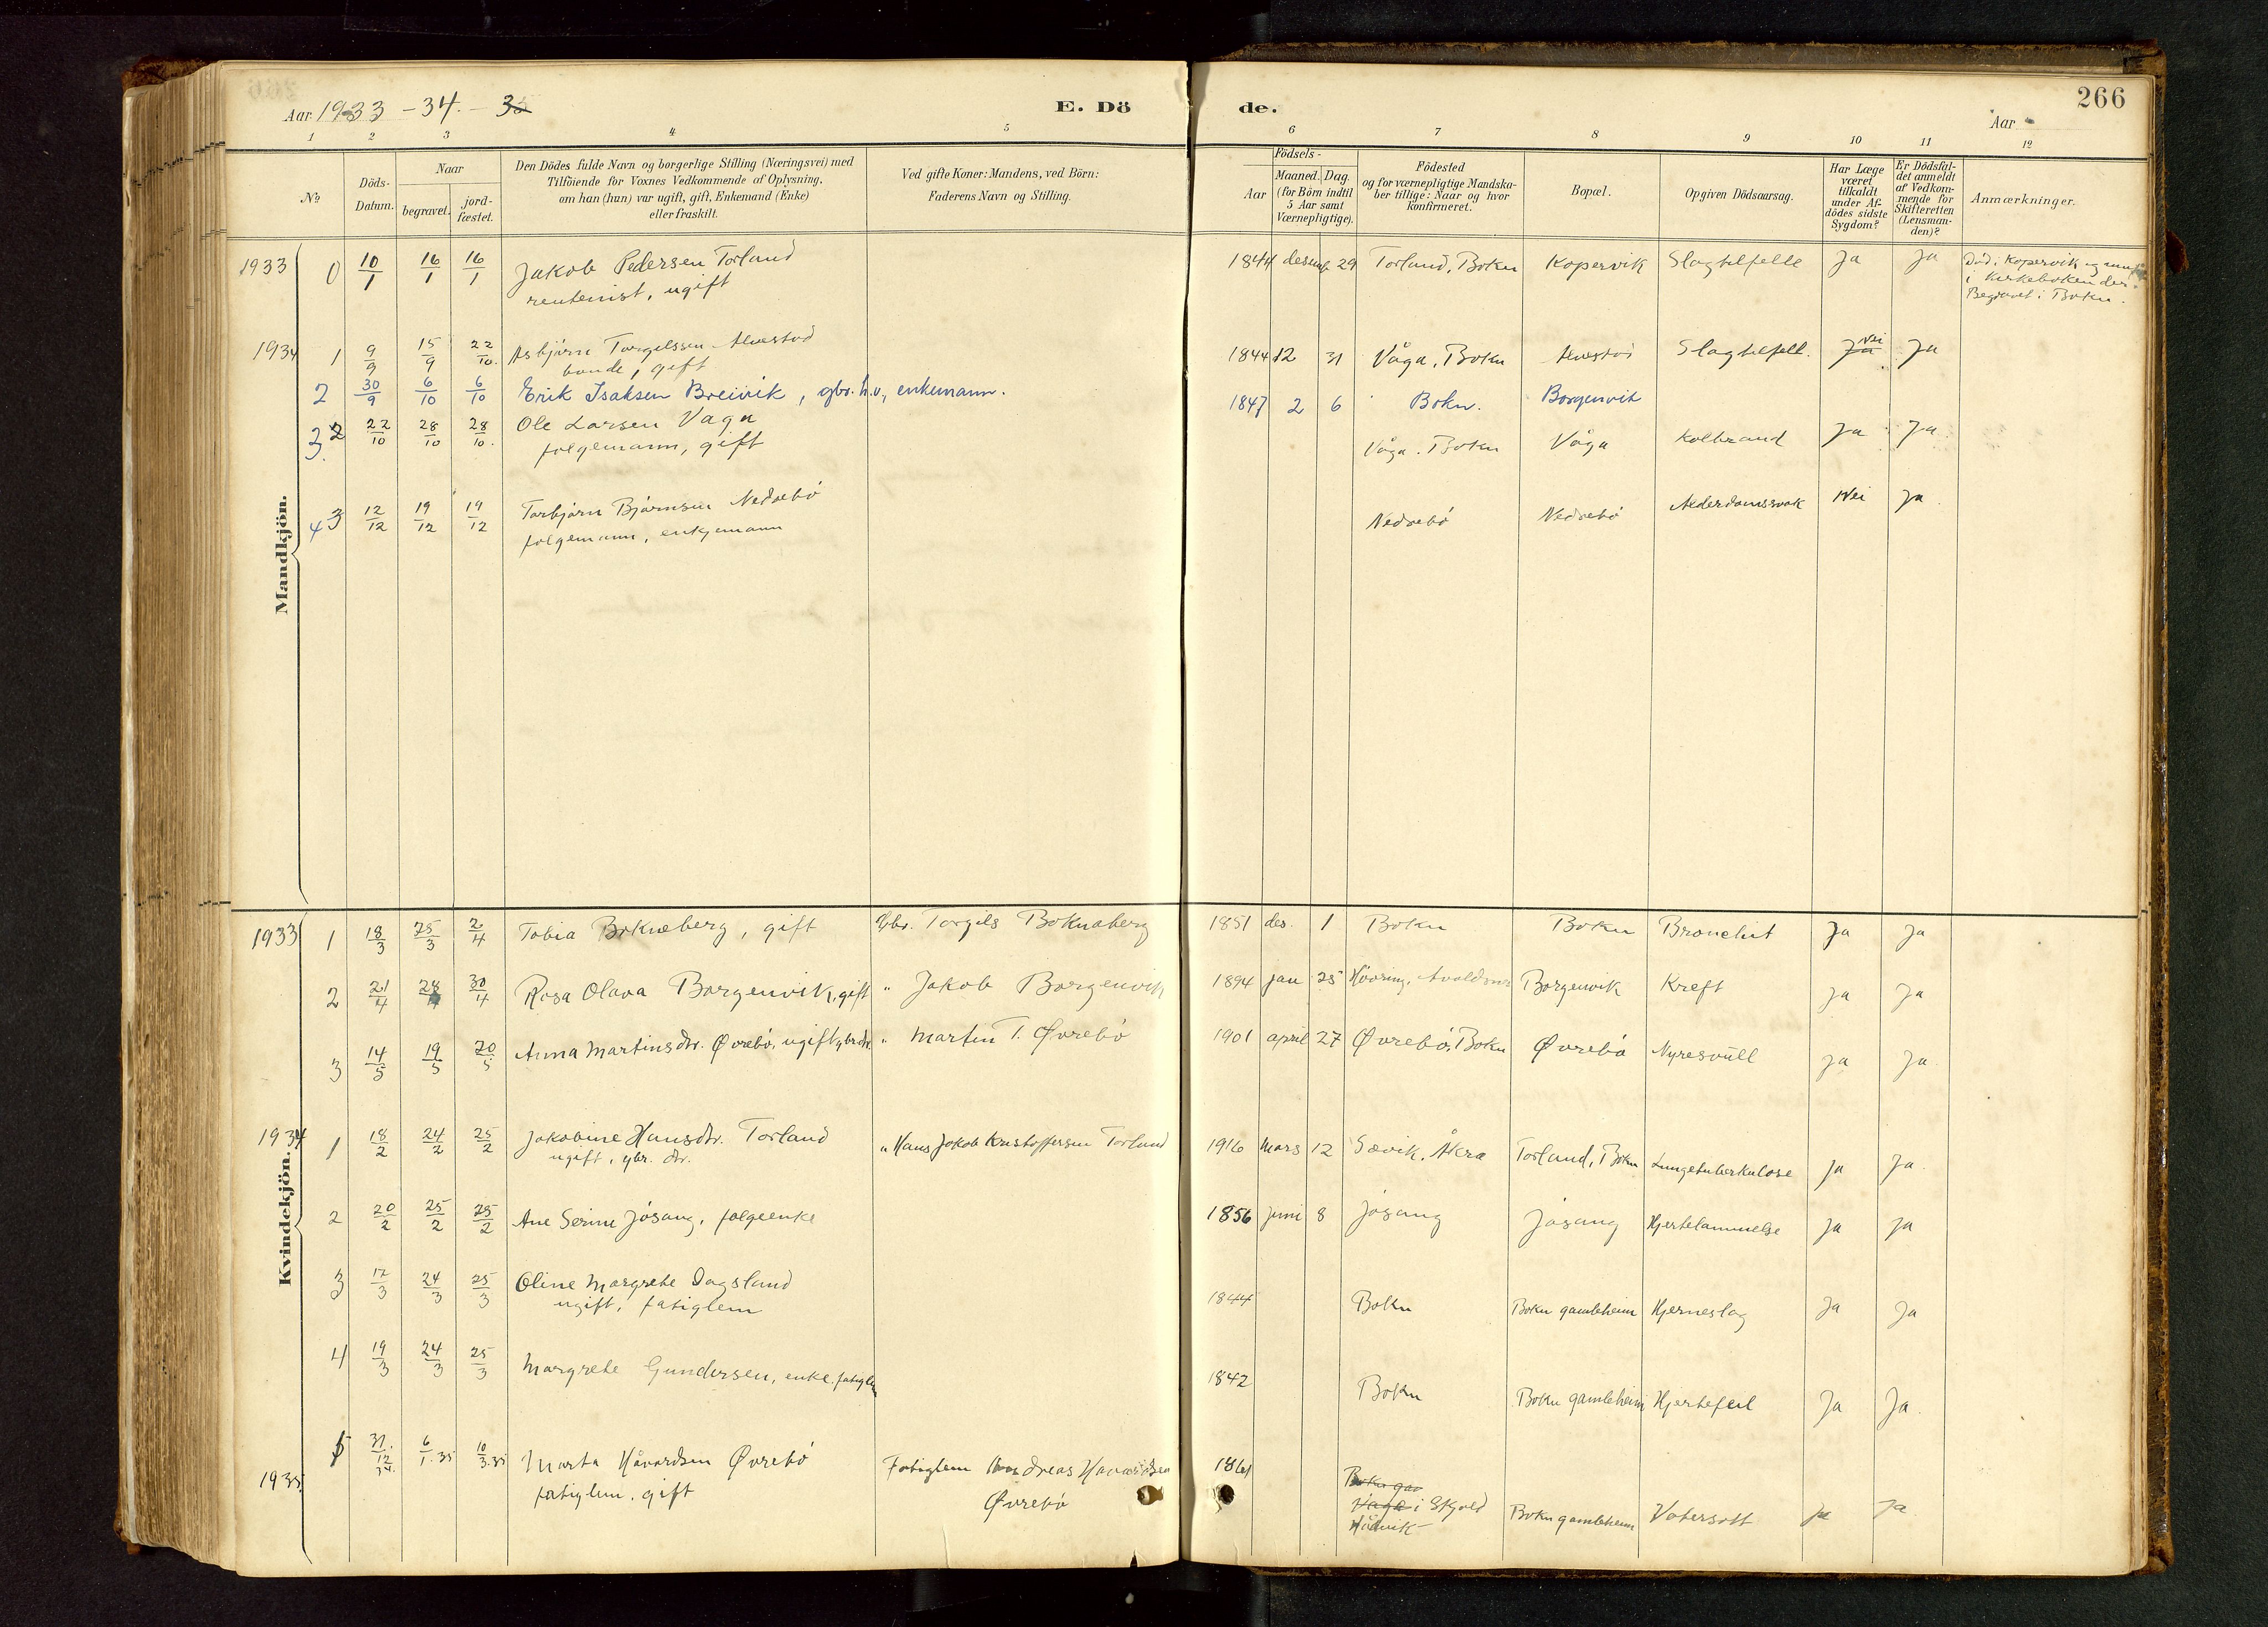 266
Aar 1933 - 34. -
E. Dö
de.
Aar
1 2 3 4 5 6 7 8 9 10 11 12
No
Döds-
Datum.
Naar
begravet.
jord-
fæstet.
Den Dödes fulde Navn og borgerlige Stilling (Næringsvei) med
Tilföiende for Voxnes Vedkommende af Oplysning,
om han (hun) var ugift, gift, Enkemand (Enke)
eller fraskilt.
Ved gifte Koner: Mandens, ved Börn:
Faderens Navn og Stilling.
Födsels-
Aar
Maaned. Dag.
(for Börn indtil
5 Aar samt
Værnepligtige).
Födested
og for værnepligtige Mandska-
ber tillige: Naar og hvor
konfirmeret.
Bopæl.
Opgiven Dödsaarsag.
Har Læge
været
tilkaldt
under Af-
dödes sidste
Sygdom?
Er Dödsfal-
det anmeldt
af Vedkom-
mende for
Skifteretten
(Lensman-
den)?
Anmærkninger.
Mandkjön.
1933 0 10/1 16/1 16/1 Jakob Pedersen Torland 1844 desemb 29 Torland, Bokn Kopervik Slagtilfelle Ja Ja Död i Kopervik og
rentenist, ugift i kirkeboken der.
Begravet i Bokn.
1934 1 9/9 15/9 22/10. Asbjørn Torgelssen Alvestad 1844 12 31 Våga, Bokn Alvestad Slagtilfelle. Ja nei Ja
bonde, gift
2 30/9 6/10 6/10 Erik Isaksen Breivik, gbr. h.v., enkemann. 1847 2 6 Bokn. Borgenvik
3. 2 22/10 28/10 28/10. Ole Larsen Vaga Våga. Bokn Våga Kolbrand Ja Ja
folgemann, gift
4 3 12/12 19/12 19/12 Torbjørn Bjørnsen Nedrebö Nedrebö Nedrebö Alderdomssvak Nei Ja
folgemann, enkjemann
Kvindekjön.
1933 1 18/3 25/3 2/4 Tobia Boknaberg, gift Gbr. Torgils Boknaberg 1851 des. 1 Bokn Bokn Bronchit Ja Ja
2 21/4 28/4 30/4 Rosa Olava Borgenvik, gift " Jakob Borgenvik 1894 jan 25 Hövring, Avaldsnes Borgenvik Kreft Ja Ja
3 14/5 19/5 20/5 Anna Martinsdtr. Øvrebö, ugift, gbrdtr. " Martin T. Øvrebö 1901 april 27 Øvrebö, Bokn Øvrebö Nyresvull Ja Ja
1934 1 18/2 24/2 25/2 Jakobine Hansdtr. Torland " Hans Jakob Kristoffersen Torland 1916 Mars 12 Sævik, Åkra Torland, Bokn Lungetuberkulose Ja Ja
ugift, gbr. dtr.
2 20/2 25/2 25/2 Ane Serine Jösang, folgeenke 1856 Juni 8 Jösang Jösang Hjertelammelse Ja Ja
3 17/3 24/3 25/3 Oline Margrete Dagsland 1844 Bokn Bokn gamleheim Hjerneslag Ja Ja
ugift, fatiglem
4 19/3 24/3 25/3 Margrete Gundersen, enke. fatiglem 1842 Bokn Bokn gamleheim Hjertefeil Ja Ja
5 31/12 34. 6/1. 35 10/3. 35 Marta Håvardsen Øvrebö Fatiglem Andreas Havardsen 1861 Bokn gam
1935. fatiglem, gift Øvrebö Våga i Skjold Bokn gamleheim Vatersott Ja Ja